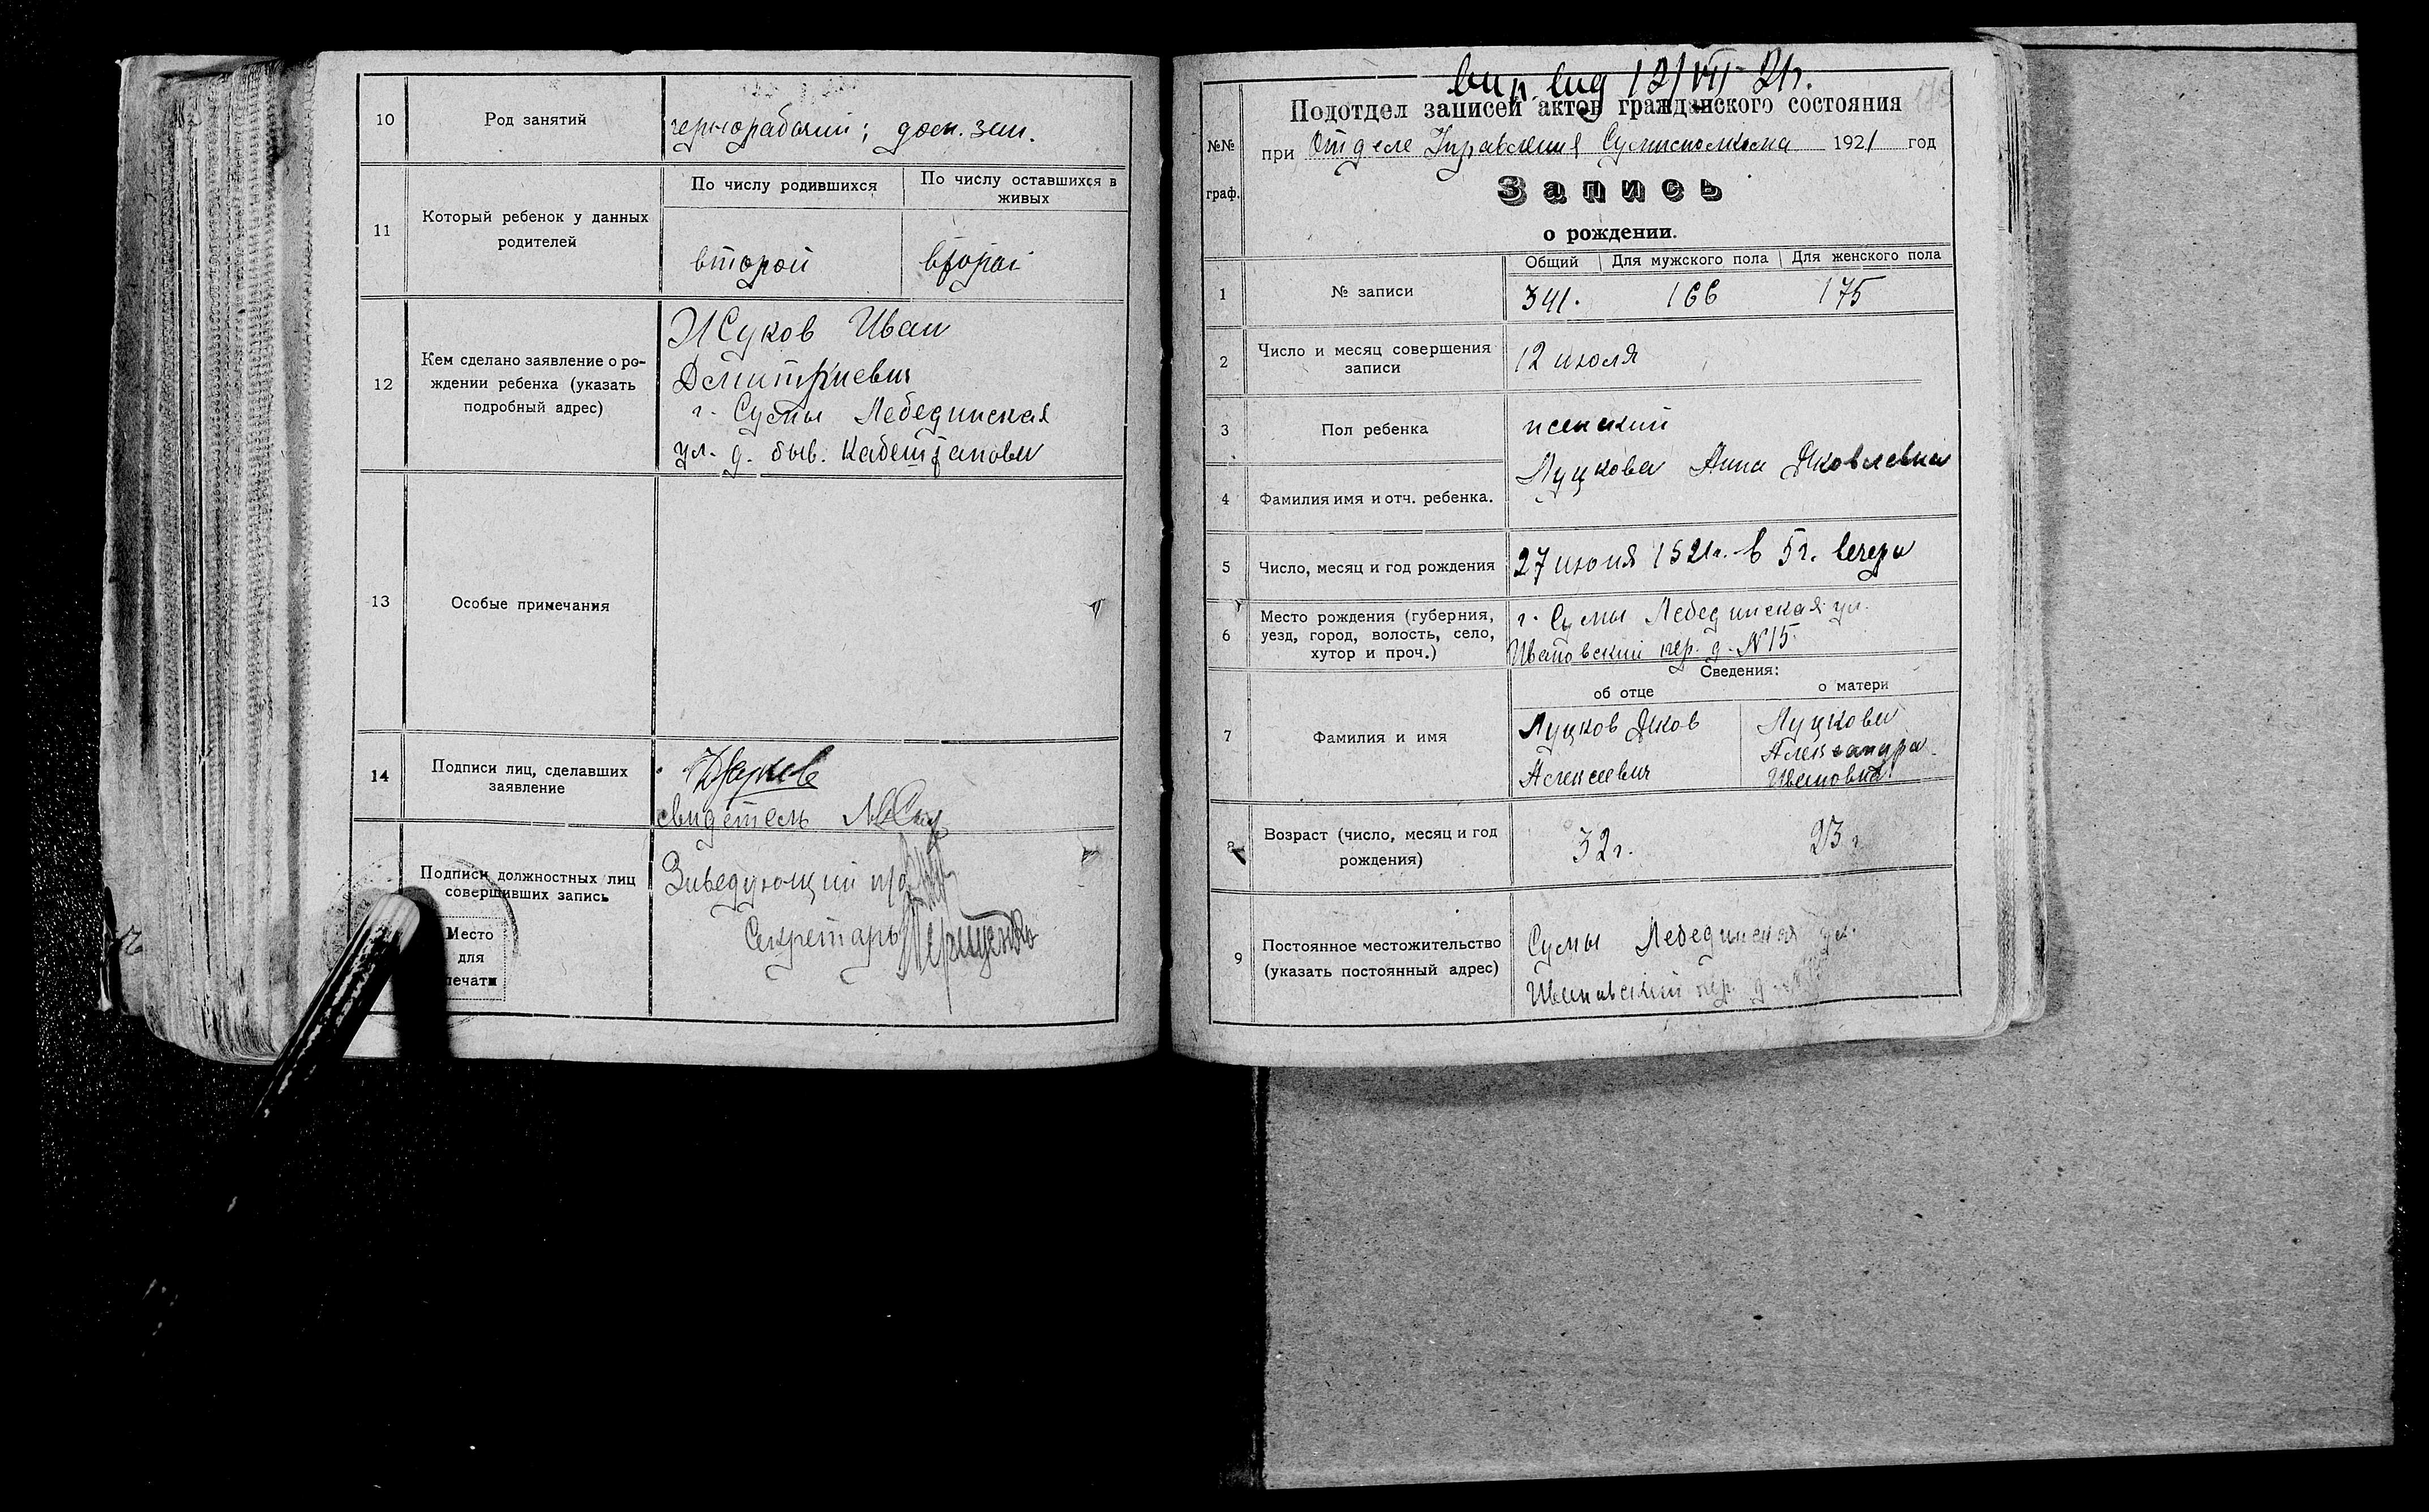 10
Род занятий
чернорабочий; дом. зан.
11
Который ребенок у данных
родителей
По числу родившихся
По числу оставшихся в
живых
второй
второй
12
Кем сделано заявление о ро-
ждении ребенка (указать
подробный адрес)
Жуков Иван
Дмитриевич
г. Сумы Лебединская
ул. д. быв.
13
Особые примечания
14
Подписи лиц, сделавших
заявление
Жуков
свидетель
Подписи должностных лиц
совершивших запись
Место
для
печати
Заведующий п/о
Секретарь
12/VII 21г.
Подотдел записей актов гражданского состояния
№№
граф.
при Отделе Управления Сумисполкома 1921 год
Запись
о рождении.
Общий Для мужского пола Для женского пола
1
№ записи
341. 166 175
2
Число и месяц совершения
записи
12 июля
3
Пол ребенка
женский
4
Фамилия имя и отч. ребенка.
Луцкова Анна Яковлевна
5
Число, месяц и год рождения
27 июня 1921г. в 5 ч. вечера
6
Место рождения (губерния,
уезд, город, волость, село,
хутор и проч.)
г. Сумы Лебединская ул.
Ивановский пер. д. №15
Сведения:
об отце
о матери
7
Фамилия и имя
Луцков Яков
Алексеевич
Луцкова
Александра
Ивановна
8
Возраст (число, месяц и год
рождения)
32г.
23г
9
Постоянное местожительство
(указать постоянный адрес)
Сумы Лебединская ул.
Ивановский пер. д.